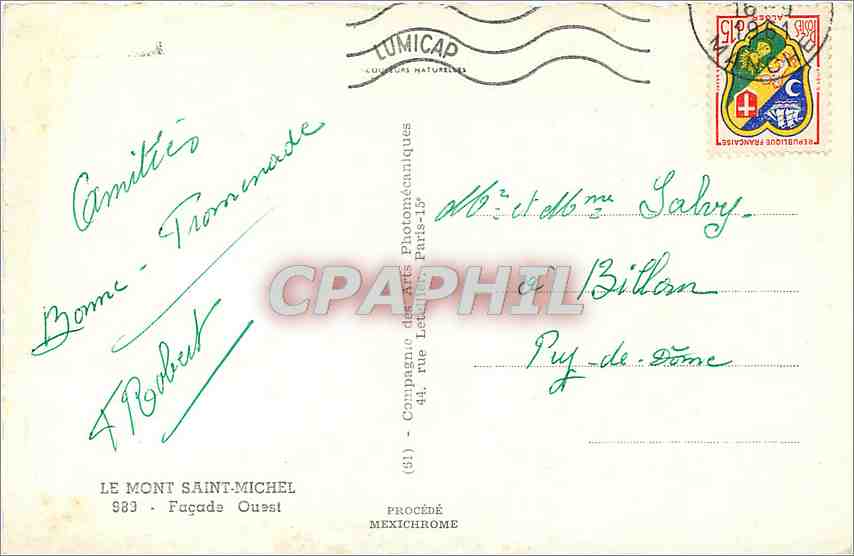 LUMICAP
COULEURS NATURELLES
16
1961
15F POSTES
ALGER
REPUBLIQUE FRANÇAISE
Amitiés
Bonne - Promenade
F Robert
LE MONT SAINT-MICHEL
983 - Façade Ouest
(61) - Compagnie des Arts Photomécaniques
44, rue Letellier, Paris-15e
PROCÉDÉ
MEXICHROME
Mr et Mme Salvy
à Billom
Puy-de-Dôme
CPAPHIL